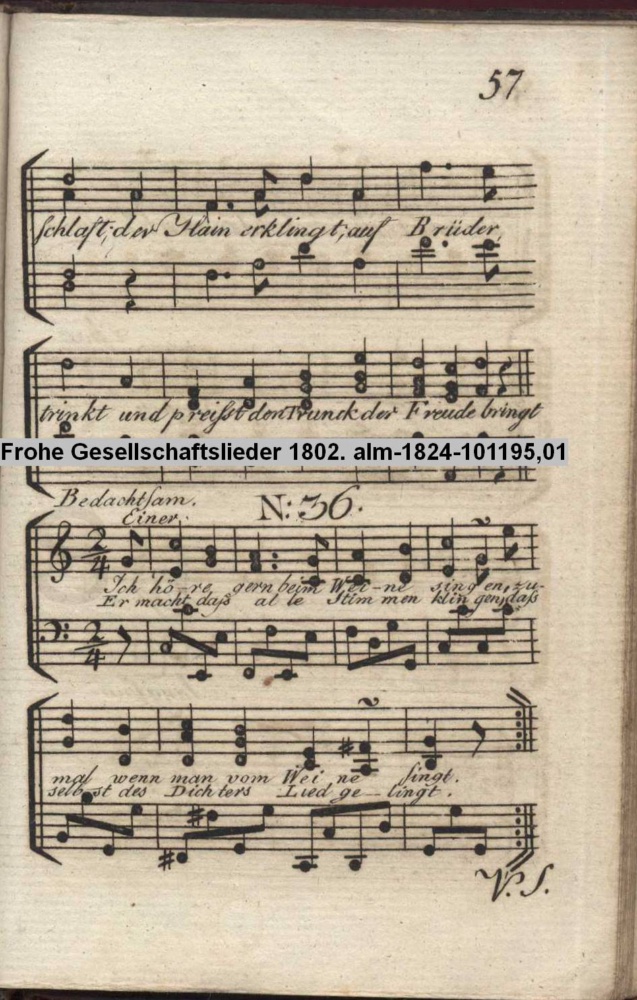 57
schlaft; der Hain erklingt; auf Brüder,
trinkt und preisst den Trunck der Freude bringt
Frohe Gesellschaftslieder 1802. alm-1824-101195,01
Bedachtsam.
Einer.
N: 36.
Ich hö-re gern beim Wei-ne singen, zu-
Er macht daß al le Stim men klin gen, daß
mal wenn man vom Wei ne singt.
selbst des Dichters Lied ge-lingt.
V. S.